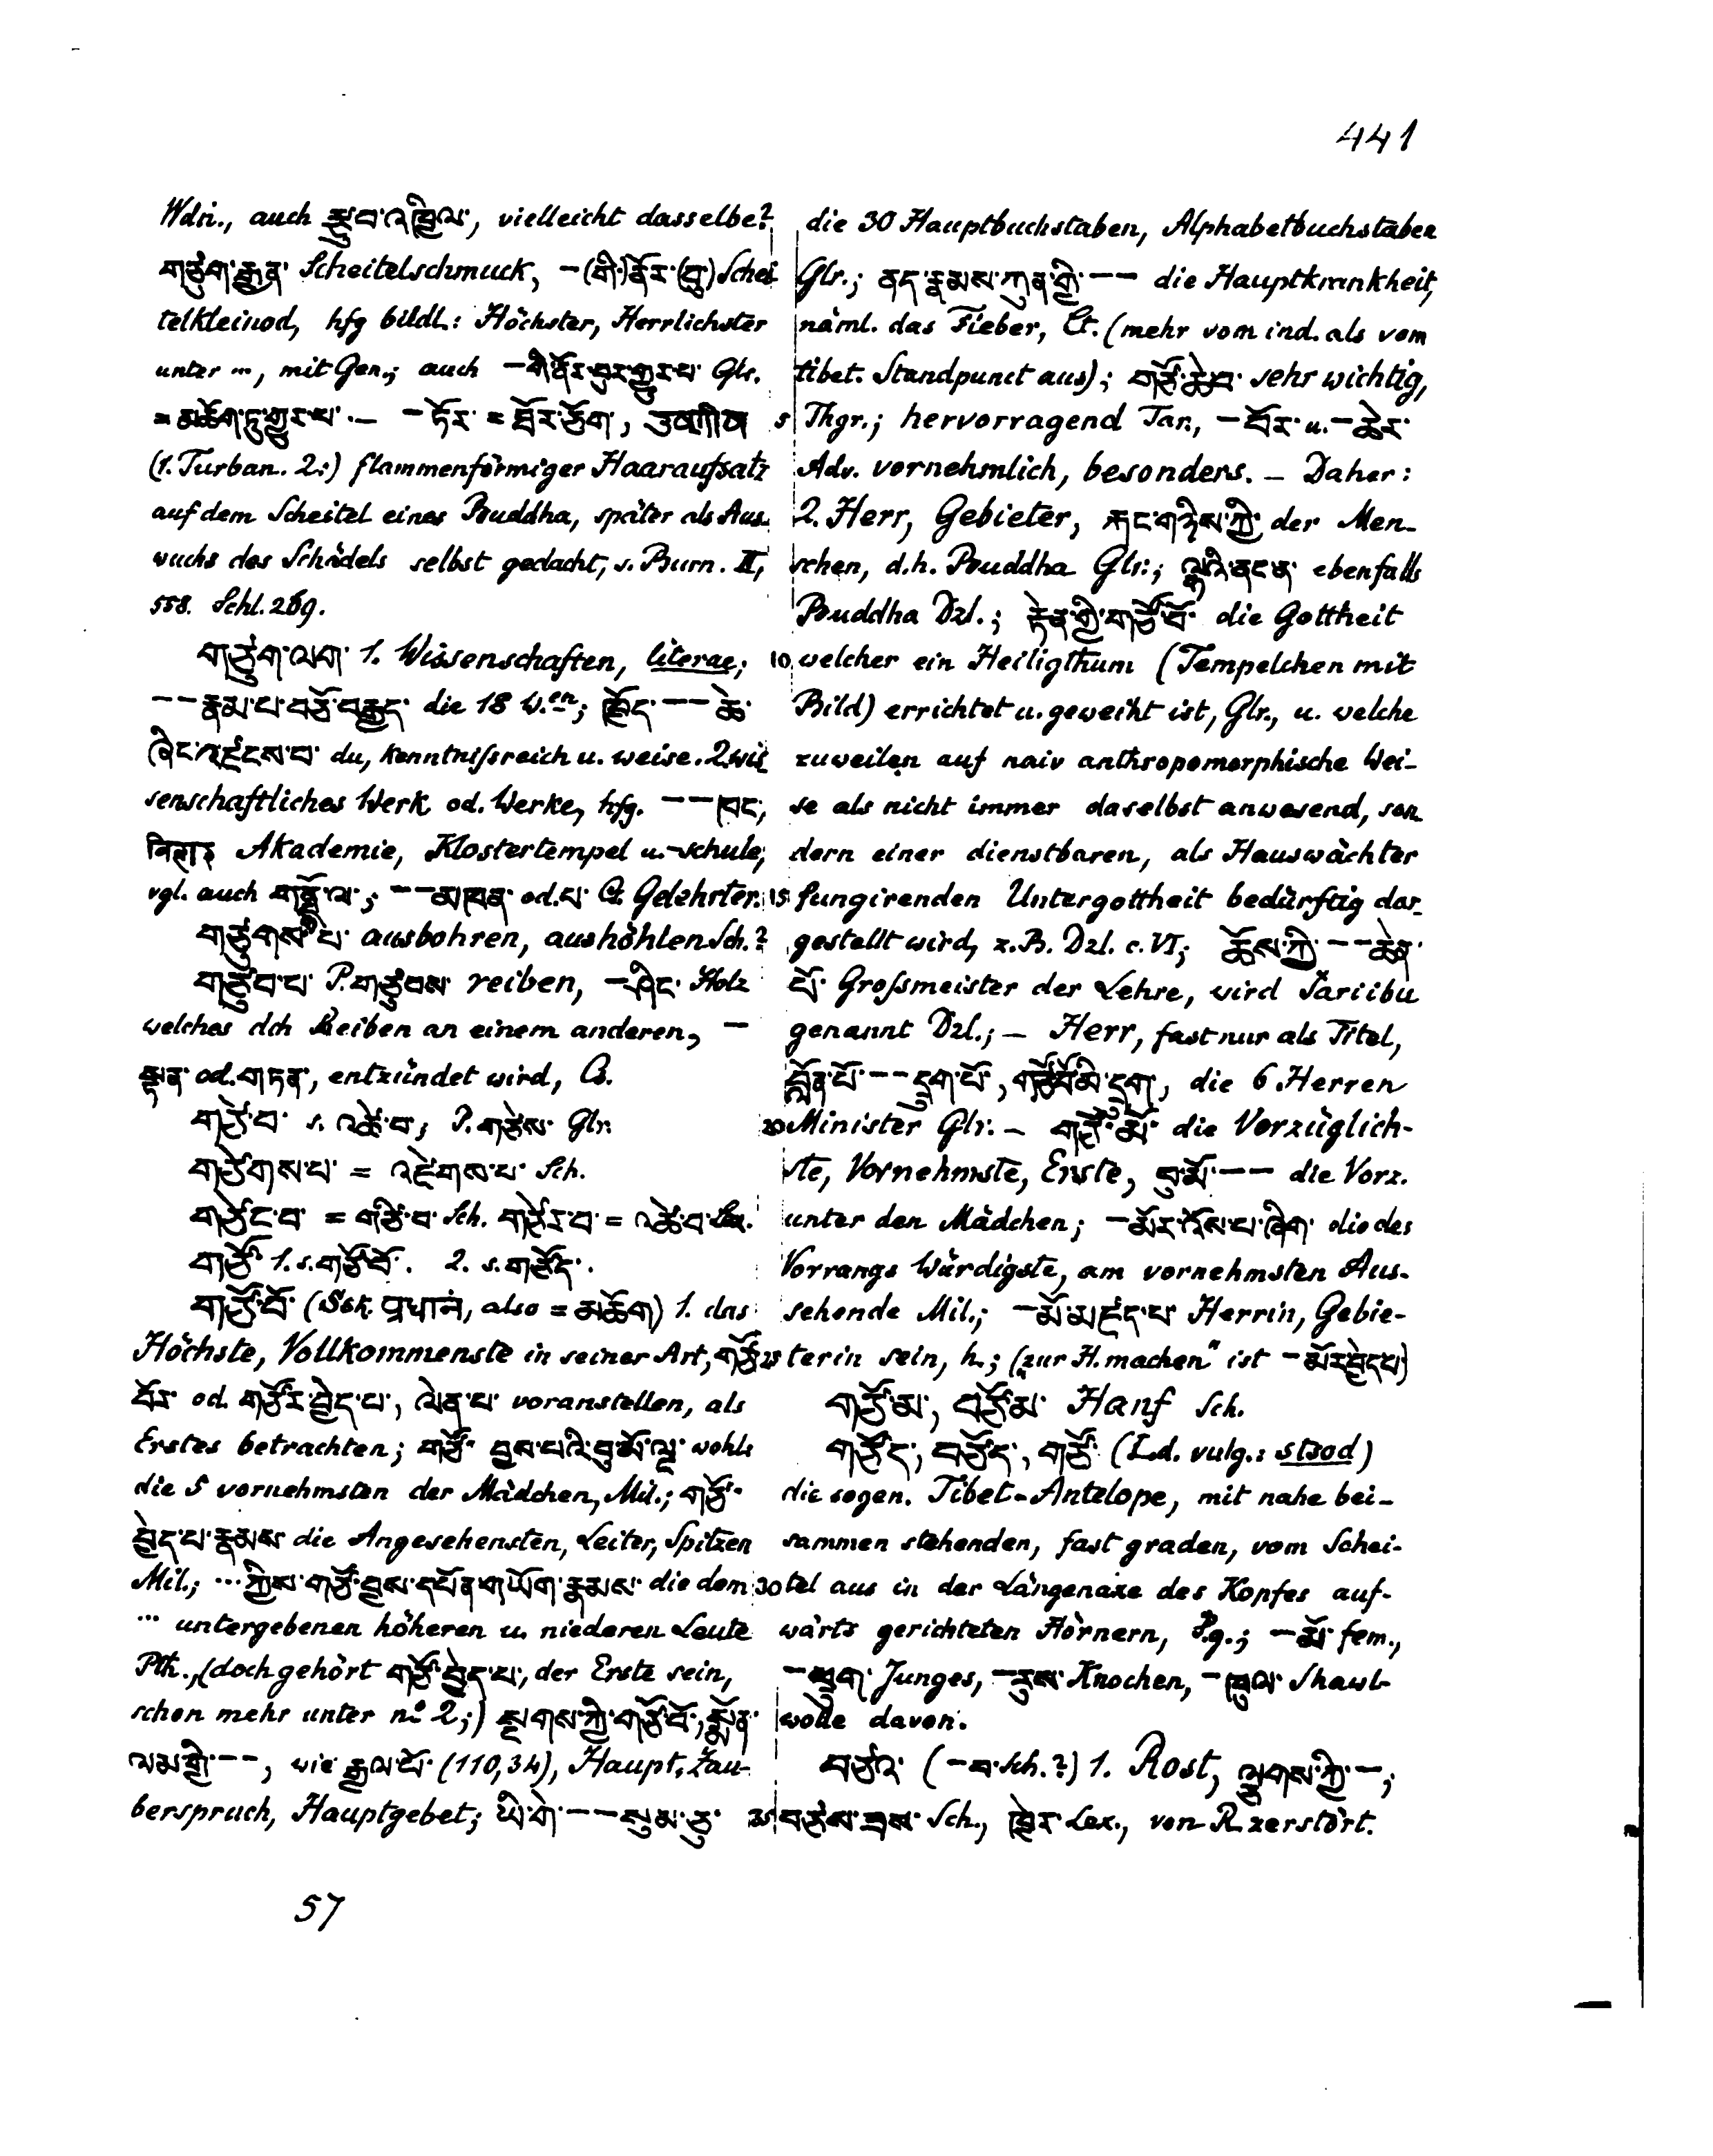 441
Wdṅ., auch རྩུབ་འཁྱིལ་, vielleicht dasselbe?
གཙུག་རྒྱན་ Scheitelschmuck, –(གི་)ནོར་(བུ་) Schei-
telkleinod, hfg bildl.: Höchster, Herrlichster
unter ..., mit Gen.; auch –གི་ནོར་བུར་གྱུར་པ་ Glr.
= མཆོག་ཏུ་གྱུར་པ་. – –ཏོར་ = སྤྱི་ཙོག་, उष्णीष
(1. Turban. 2:) flammenförmiger Haaraufsatz
auf dem Scheitel eines Buddha, später als Aus-
wuchs des Schädels selbst gedacht, s. Burn. II,
558. Schl. 269.
གཙུག་ལག་ 1. Wissenschaften, literae;
– –རྣམ་པ་བཅོ་བརྒྱད་ die 18 W.en; ཁྱོད་ – – ཆེ་
ཞིང་འཛངས་པ་ du, kenntnißreich u. weise. 2. wis-
senschaftliches Werk od. Werke, hfg. – –ཁང་,
विहार Akademie, Klostertempel u. -schule;
vgl. auch གནྡོ་ལ་; – –མཁན་ od. པ་ Cs. Gelehrter.
གཙུགས་པ་ ausbohren, aushöhlen Sch.?
གཙུབ་པ་ P. གཙུབས་ reiben, –ཤིང་ Holz
welches dch Reiben an einem anderen, –
སྟན་ od. གཏན་, entzündet wird, Cs.
གཙེ་བ་ s. འཚེ་བ་; P. གཙེས་ Glr.
གཙེགས་པ་ = འཛེགས་པ་ Sch.
གཙེང་བ་ = གཙི་བ་ Sch. གཙེར་བ་ = འཚེ་བ་
གཙོ་ 1. s. གཙོ་བོ་. 2. s. གཙོད་.
གཙོ་བོ་ (Ssk. प्रधानं, also = མཆོག) 1. das
Höchste, Vollkommenste in seiner Art, གཙོ་
བོར་ od. གཙོར་བྱེད་པ་, ལེན་པ་ voranstellen, als
Erstes betrachten; གཙོ་ བྱས་པའི་བུ་མོ་ལྔ་ wohl:
die 5 vornehmsten der Mädchen, Mil.; གཙོ་
བྱེད་པ་རྣམས་ die Angesehensten, Leiter, Spitzen
Mil.; ... ཀྱིས་གཙོ་བྱས་དཔོན་གཡོག་རྣམས་ die dem
... untergebenen höheren u. niederen Leute
Pth., (doch gehört གཙོ་བྱེད་པ་, der Erste sein,
schon mehr unter no 2;) སྔགས་ཀྱི་གཙོ་བོ་, སྨོན་
ལམ་གྱི་ – –, wie རྒྱལ་པོ་ (110,34), Haupt-Zau-
berspruch, Hauptgebet; ཡི་གེ་ – – སུམ་ཅུ་
57
die 30 Hauptbuchstaben, Alphabetbuchstaben
Glr.; ནད་རྣམས་ཀུན་གྱི་ – – die Hauptkrankheit,
näml. das Fieber, Lt. (mehr vom ind. als vom
tibet. Standpunct aus); གཙོ་ཆེ་བ་ sehr wichtig,
5 Thgr.; hervorragend Tar., –བོར་ u. –ཆེར་
Adv. vornehmlich, besonders. – Daher:
2. Herr, Gebieter, རྐང་གཉིས་ཀྱི་ der Men-
schen, d.h. Buddha Glr.; ལྷའི་ནང་ན་ ebenfalls
Buddha Dzl.; རྟེན་གྱི་གཙོ་བོ་ die Gottheit
10 welcher ein Heiligthum (Tempelchen mit
Bild) errichtet u. geweiht ist, Glr., u. welche
zuweilen auf naiv anthropomorphische Wei-
se als nicht immer daselbst anwesend, son-
dern einer dienstbaren, als Hauswächter
15 fungirenden Untergottheit bedürftig dar-
gestellt wird, z.B. Dzl. c. VI; ཆོས་ཀྱི་ – – ཆེན་
པོ་ Großmeister der Lehre, wird Śariibu
genannt Dzl.; – Herr, fast nur als Titel,
བློན་པོ་ – – དྲུག་པོ་, གཙོ་བོ་མི་དྲུག་, die 6 Herren
20 Minister Glr. – གཙོ་མོ་ die Vorzüglich-
ste, Vornehmste, Erste, བུ་མོ་ – – die Vorz.
unter den Mädchen; –མོར་འོས་པ་ཞིག་ die des
Vorrangs Würdigste, am vornehmsten Aus-
sehende Mil.; –མོ་མཛད་པ་ Herrin, Gebie-
25 terin sein, h.; („zur H. machen" ist –མོར་བྱེད་པ་)
གཙོ་མ་, བཙོ་མ་ Hanf Sch.
གཙོད་, བཙོད་, གཙོ་ (Ld. vulg.: stsod)
die sogen. Tibet-Antelope, mit nahe bei-
sammen stehenden, fast graden, vom Schei-
30 tel aus in der Längenaxe des Kopfes auf-
wärts gerichteten Hörnern, Pg.; –མོ་ fem.,
–ཕྲུག་ Junges, –རུས་ Knochen, –ཁུལ་ Shawl-
wolle davon.
བཙའ་ (–བ་ Sch.?) 1. Rost, ལྕགས་ཀྱི་ –;
35 བཙས་ཟས་ Sch., ཁྱེར་ Lex., von R. zerstört.